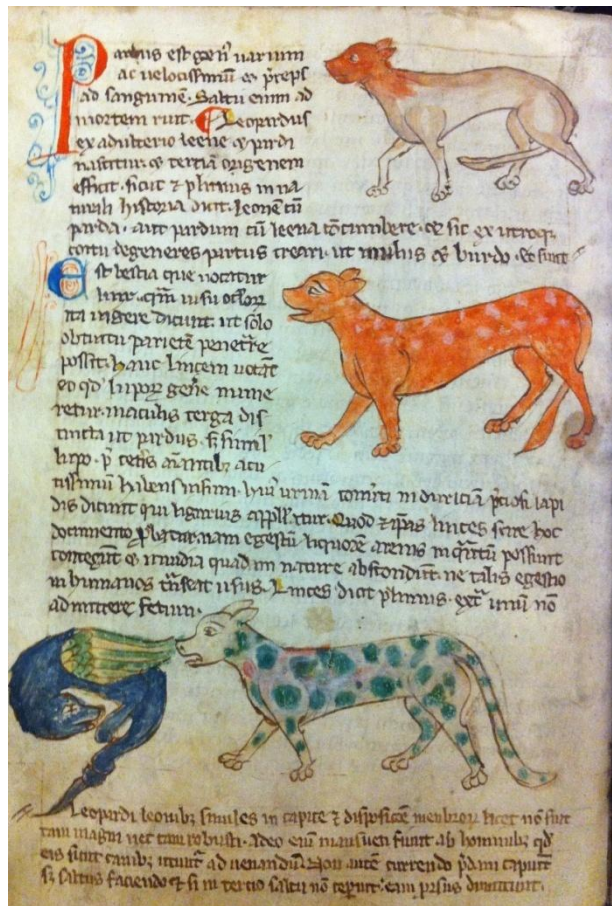 Pardus est gen' varium
ac velocissimū et p̄ceps
ad sanguinē. Saltu enim ad
mortem ruit. Leopardus
ex adulterio leene et pardi
nascitur. et terciā originem
efficit. sicut et plinius in na
turali historia dicit. leonē cū
parda. aut pardum cū leena concumbere. et sic ex utroq;
coitu degeneres partus creari. ut mulus et burdo. Et sunt
Est bestia que uocatur
linx.
ita uigere dicunt. ut solo
obtuitu parietē penetrare
possit. hanc lincem uocāt
eo qd' lupoꝝ gen'e nume
retur. maculis terga dis
tincta ut pardus. s; simil'
lupo. p̄ cet'is aīantib; acu
tissimum habens uisum. hui' urinā conu'ti in duriciā p̄ciosi lapi
dis dicunt qui ligurius appell'tur. Quod et ip̄as linces scire hoc
documento p̄batur. nam egestū liquorē arenis in q̄ntū possunt
contegunt et inuidia quadam nature abscondunt. ne talis egestio
in humanos t̄nseat usus. Linces dicit plinius. ext̄ unū nō
admittere fetum.
Leopardi leonib; similes in capite et disposicōe membroꝝ licet nō sint
tam magni nec tam robusti. Adeo eni mansueti fiunt ab hominib; qd'
eis sicut canib; utunt' ad uenandū. Non autē currendo p̄dam capiunt
s; saltus faciendo et si in tercio saltu nō ceperint. eam prorsus dimittunt.